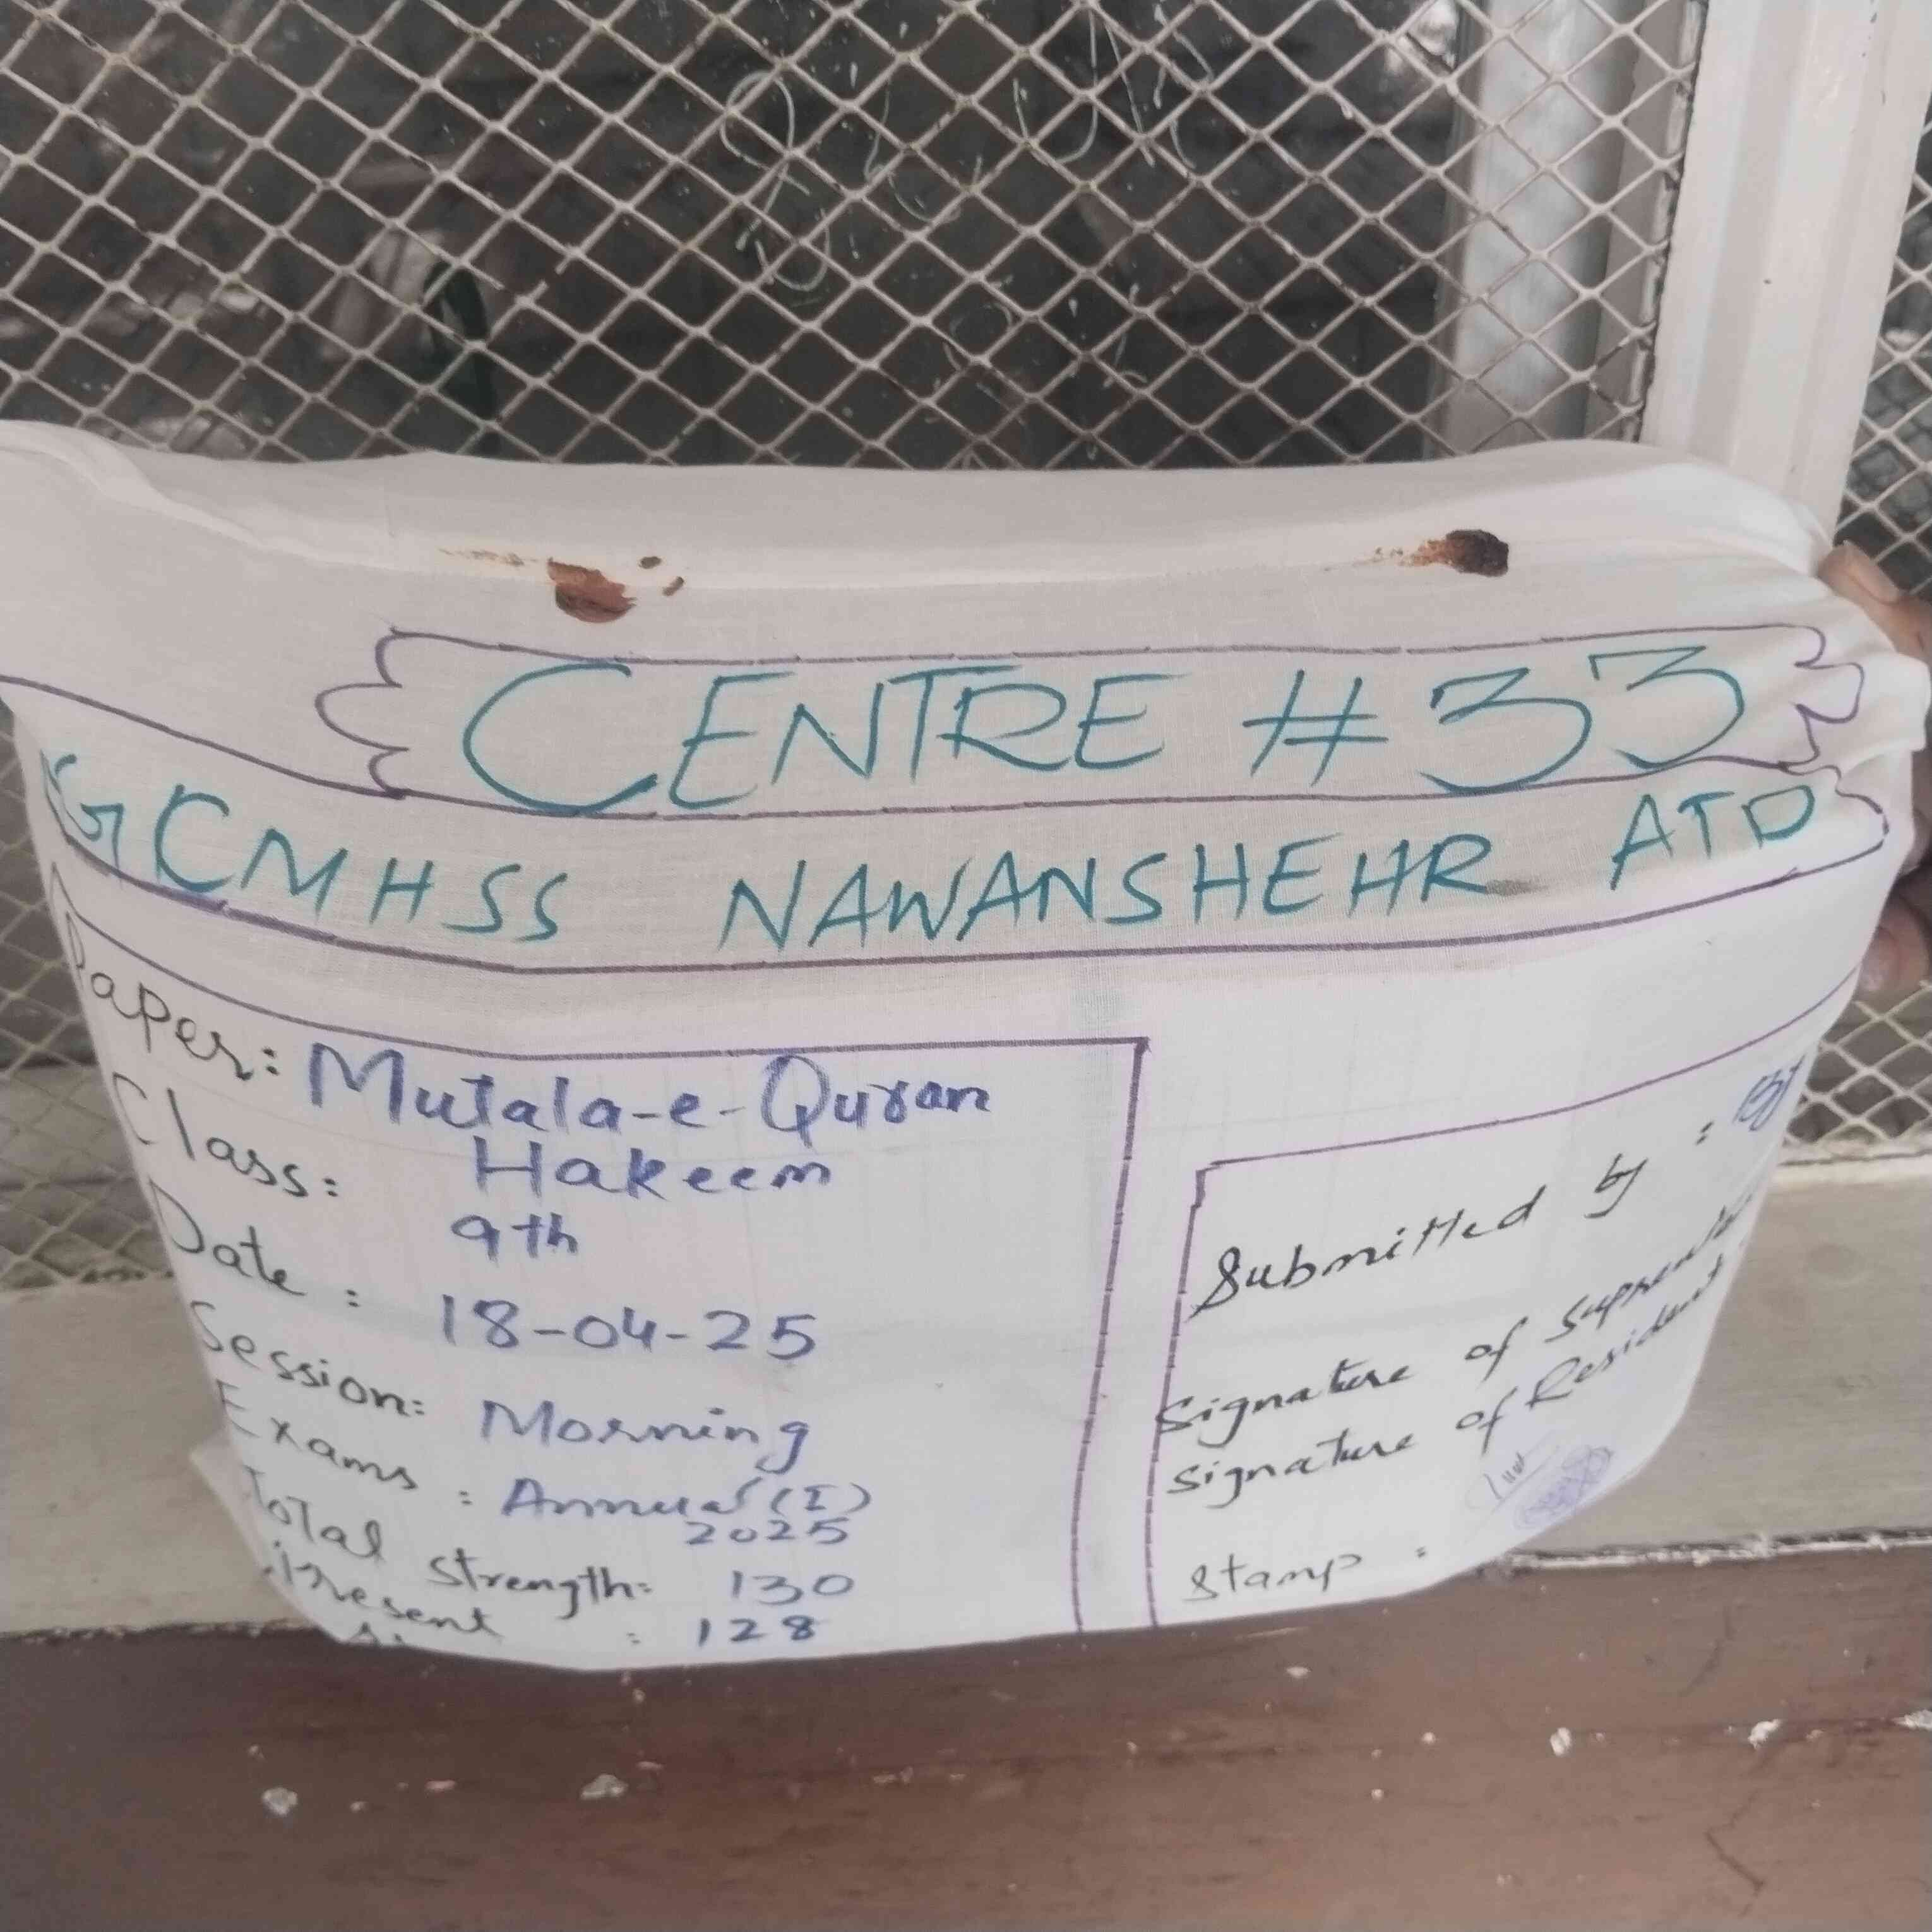 CENTRE # 33
GCMHSS NAWANSHEHR ATD
Paper: Mutala-e-Quran
Hakeem
Class: 9th
Date: 18-04-25
Session: Morning
Exams: Annual (I)
2025
Total Strength: 130
Present: 128
Submitted by:
Signature of
Signature of Resident
Stamp: